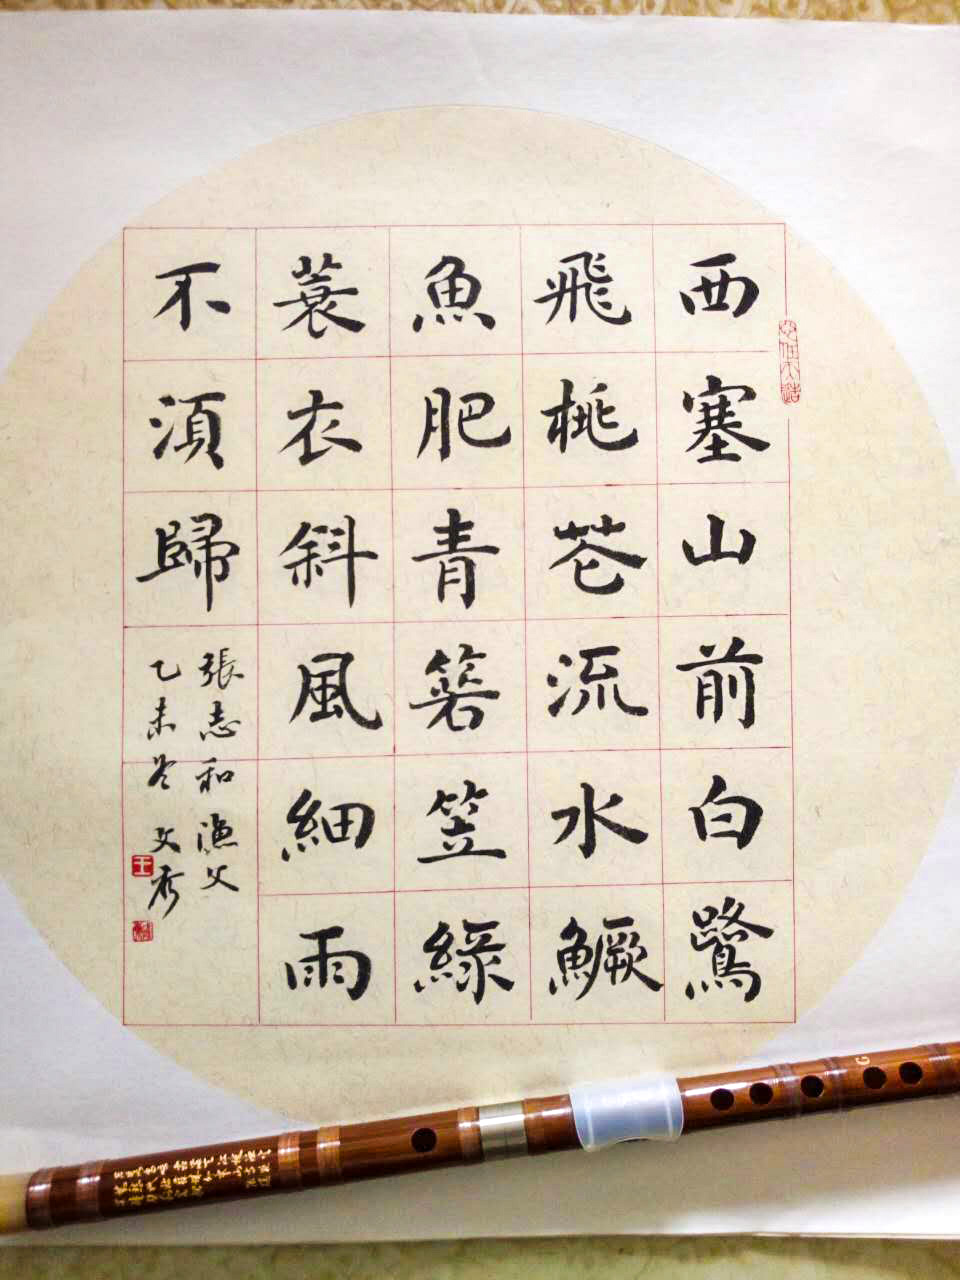 西塞山前白鷺
飛桃花流水鱖
魚肥青箬笠綠
蓑衣斜風細雨
不湏歸
張志和漁父
乙未冬 文秀
王
G